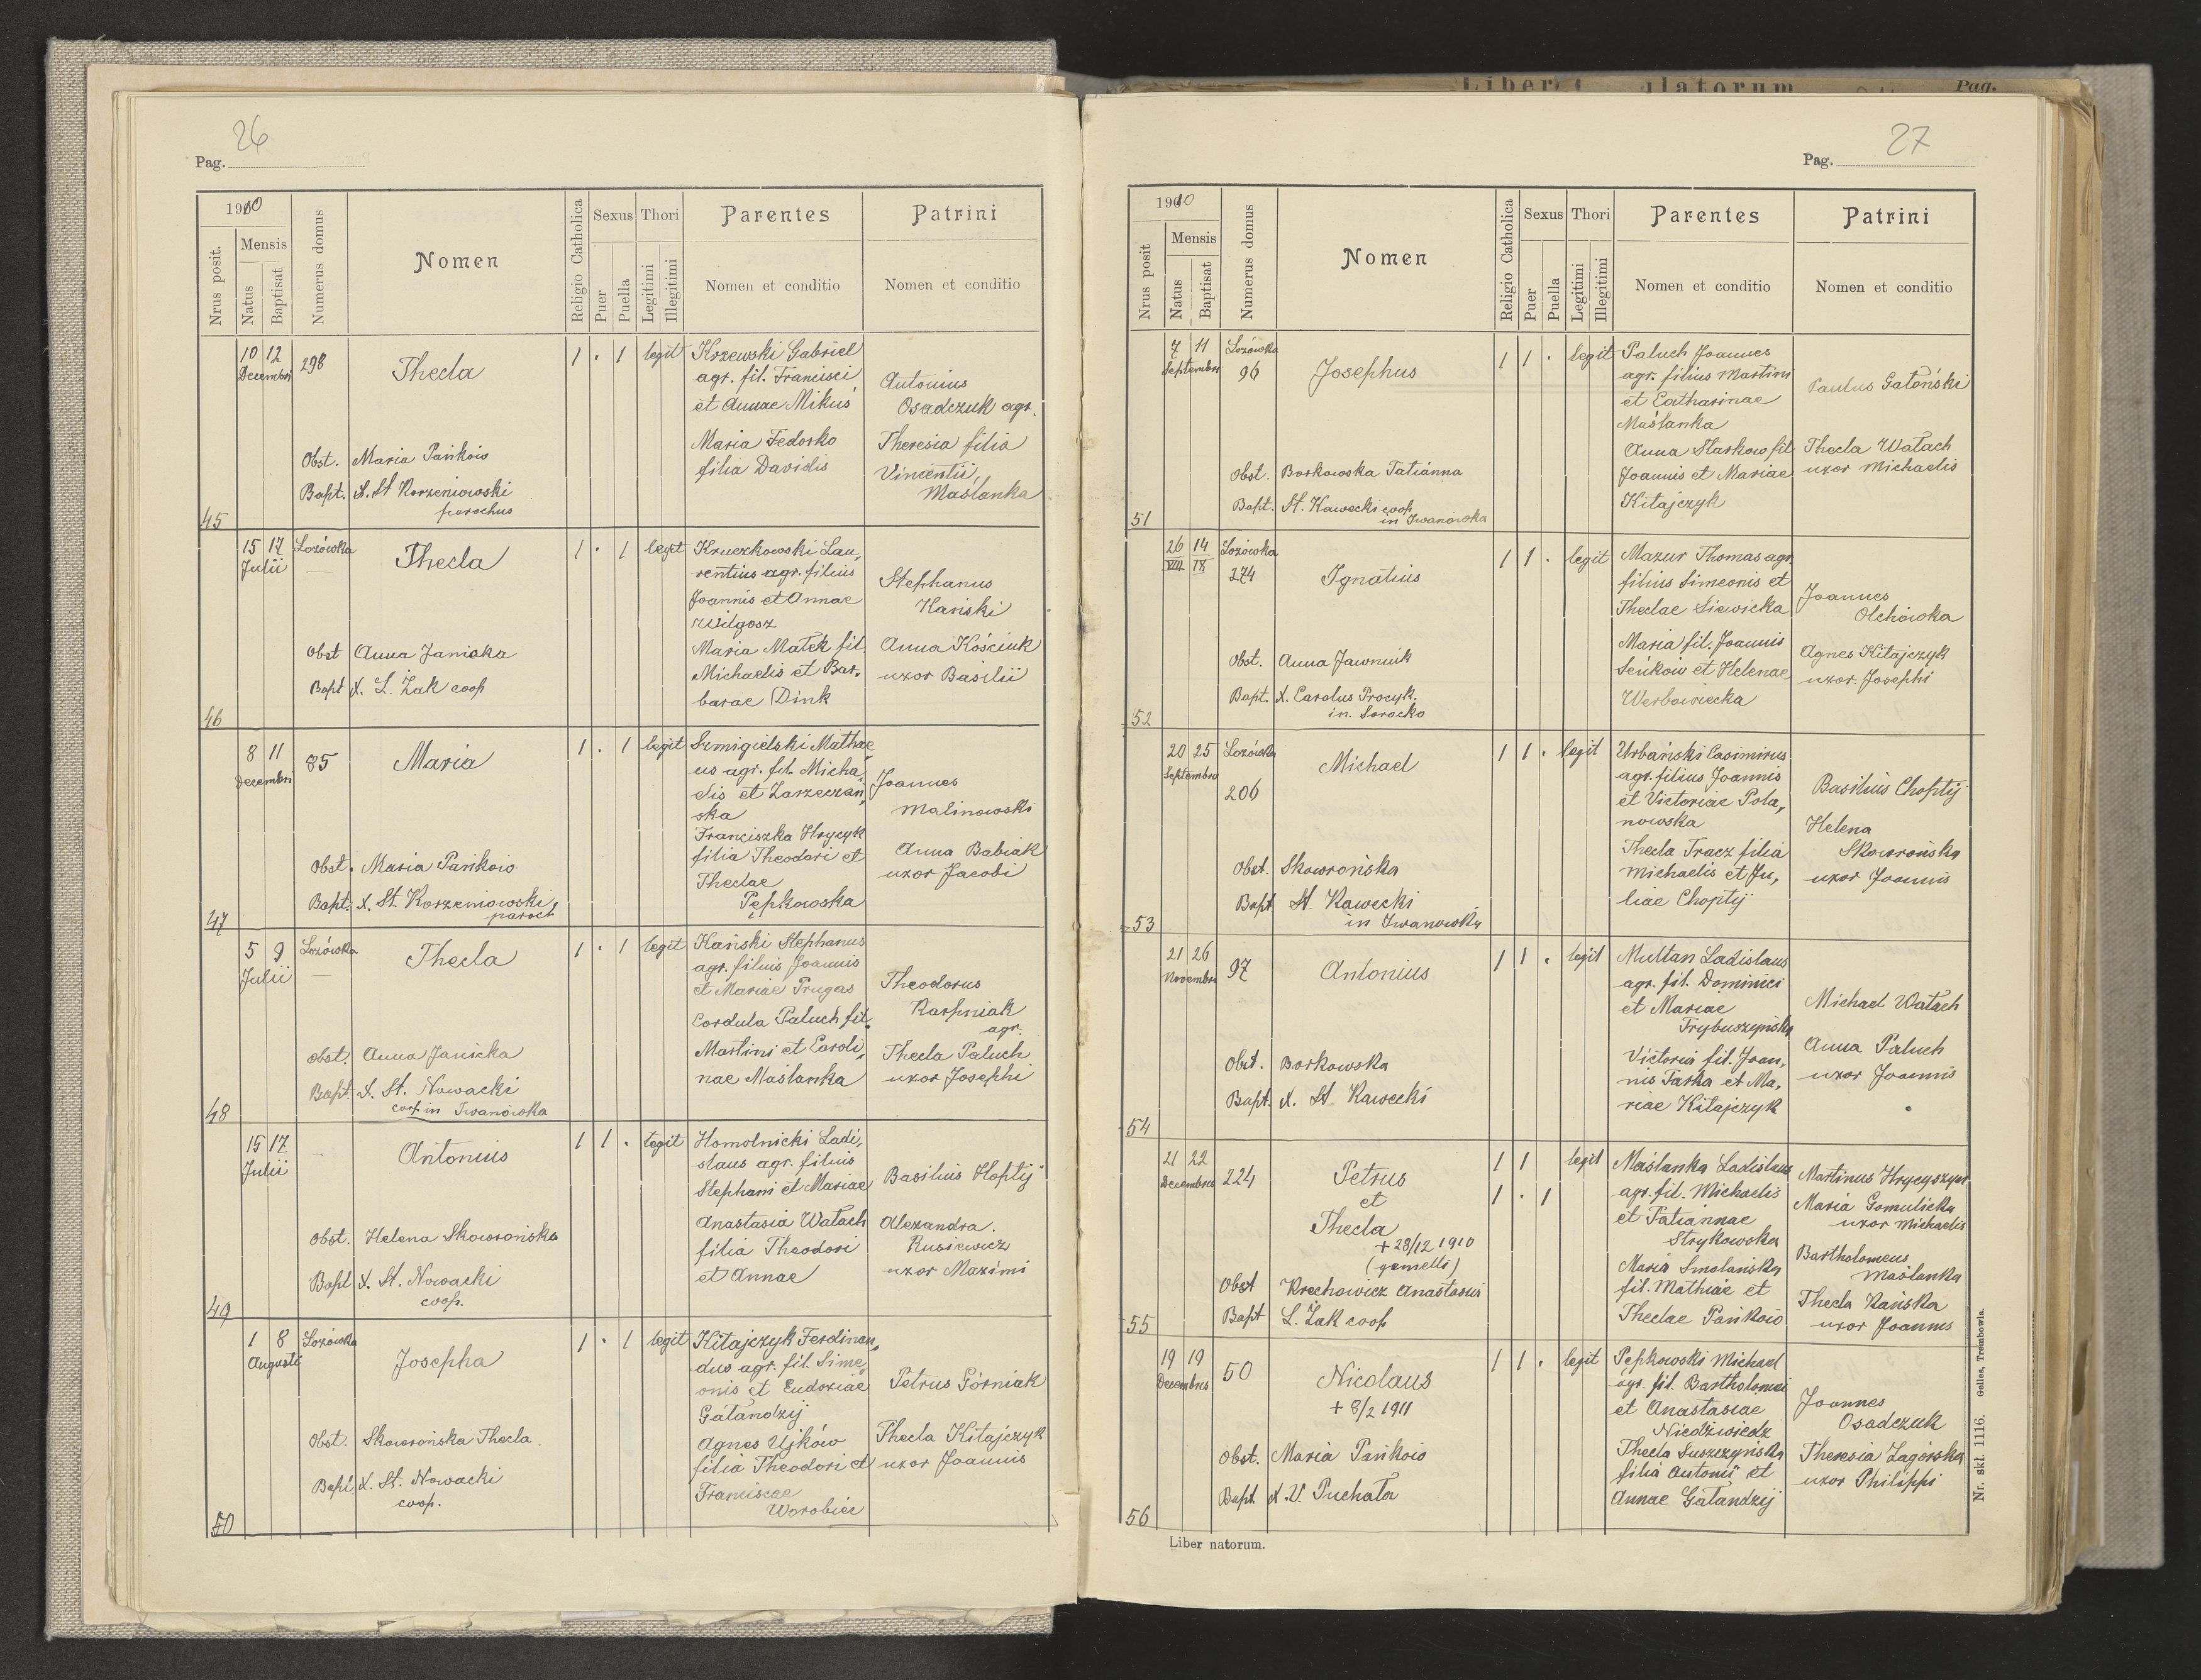 Liber
ulatorum
Pag.
26
Pag.
1910
Nrus posit.
Mensis
Natus
Baptisat
Numerus domus
Nomen
Religio Catholica
Sexus
Puer
Puella
Thori
Legitimi
Illegitimi
Parentes
Nomen et conditio
Patrini
Nomen et conditio
45
10 12
Decembri
298
Thecla
1 . 1 legit
Krzewski Gabriel
agr. fil. Francisci
et Annae Mikuś
Maria Fedorko
filia Davidis
Antonius
Osadczuk agr.
Theresia filia
Vincentii
Maślanka
Obst. Maria Pańków
Bapt. X. St Korzeniowski
parochus
46
15 17
Julii
Łozówka
—
Thecla
1 . 1 legit
Kruczkowski Lau,
rentius agr. filius
Joannis et Annae
Wilgosz
Maria Małek fil.
Michaelis et Bar,
barae Dink
Stephanus
Kański
Anna Kościuk
uxor Basilii
Obst Anna Janicka
Bapt X. L. Żak coop
47
8 11
Decembri
85
Maria
1 . 1 legit
Szmigielski Mathae,
us agr. fil. Micha,
elis et Zarzeczań,
ska
Franciszka Hrycyk
filia Theodori et
Theclae
Pępkowska
Joannes
Malinowski
Anna Babiak
uxor Jacobi
Obst. Maria Pańków
Bapt. X. St. Korzeniowski,
paroch
48
5 9
Julii
Łozówka
—
Thecla
1 . 1 legit
Kański Stephanus
agr. filius Joannis
et Mariae Prugas
Cordula Paluch fil.
Martini et Caroli,
nae Maślanka
Theodorus
Karpniak
agr.
Thecla Paluch
uxor Josephi
Obst. Anna Janicka
Bapt. X. St. Nowacki
coop. in Iwanówka
49
15 17
Julii
—
Antonius
1 1 . legit
Homolnicki Ladi,
slaus agr. filius
Stephani et Mariae
Anastasia Wałach
filia Theodori
et Annae
Basilius Hoptij
Alexandra
Rusiewicz
uxor Maximi
Obst. Helena Skowrońska
Bapt X. St. Nowacki
coop.
50
1 8
Augusti
Łozówka
Josepha
1 . 1 legit
Kitajczyk Ferdinan,
dus agr. fil. Sime,
onis et Eudoxiae
Gałandzij
Agnes Ujków
filia Theodori et
Franciscae
Worobiec
Petrus Górniak
Thecla Kitajczyk
uxor Joannis
Obst. Skowrońska Thecla.
Bapt. X. St. Nowacki
coop.
27
Pag.
1910
Nrus posit
Mensis
Natus
Baptisat
Numerus domus
Nomen
Religio Catholica
Sexus
Puer
Puella
Thori
Legitimi
Illegitimi
Parentes
Nomen et conditio
Patrini
Nomen et conditio
51
7 11
Septembri
Łozówka
96
Josephus
1 1 . legit
Paluch Joannes
agr. filius Martini
et Catharinae
Maślanka
Anna Starkow fil
Joannis et Mariae
Kitajczyk
Paulus Gateński
Thecla Wałach
uxor Michaelis
Obst. Borkowska Tatianna
Bapt. St. Kawecki coop.
in Iwanówka
52
26 14
VIII 18
Łozówka
274
Ignatius
1 1 . legit
Mazur Thomas agr.
filius Simeonis et
Theclae Siewicka
Maria fil. Joannis
Seńków et Helenae
Werbowiecka
Joannes
Olchówka
Agnes Kitajczyk
uxor Josephi
Obst. Anna Jawrnik
Bapt. X. Carolus Procyk.
in Sorocko
53
20 25
Septembri
Łozówka
206
Michael
1 1 . legit
Urbański Casimirus
agr. filius Joannis
et Victoriae Pola,
nowska
Thecla Tracz filia
Michaelis et Ju,
liae Choptij
Basilius Choptij
Helena
Skowrońska
uxor Joannis
Obst. Skowrońska
Bapt St. Kawecki
in Iwanowska
54
21 26
Novembri
97
Antonius
1 1 . legit
Multan Ladislaus
agr. fil. Dominici
et Mariae
Trybuszyńska
Victoria fil. Joan,
nis Taska et Ma,
riae Kitajczyk
Michael Wałach
Anna Paluch
uxor Joannis
Obst. Borkowska
Bapt. X. St Kawecki
55
21 22
Decembris
224
Petrus
et
Thecla
+ 28/12 1910
(gemelli)
1 1 legit
1 . 1
Maślanka Ladislaus
agr. fil. Michaelis
et Tatiannae
Strykowska
Maria Smolańska
fil. Mathiae et
Theclae Pańków
Martinus Hrycyszyn
Maria Gomulicka
uxor Michaelis
Bartholomeus
Maślanka
Thecla Kańska
uxor Joannis
Obst Krechowicz Anastasia
Bapt L. Żak coop
56
19 19
Decembris
50
Nicolaus
+ 8/2 1911
1 1 . legit
Pępkowski Michael
agr. fil. Bartholomei
et Anastasiae
Niedźwiedź
Thecla Suszczyńska
filia Antonii et
Annae Gałandzij
Joannes
Osadczuk
Theresia Zagórska
uxor Philippi
Obst. Maria Pańków
Bapt X. V. Puchała
Liber natorum.
Nr. skł. 1116. Gelles, Trembowla.